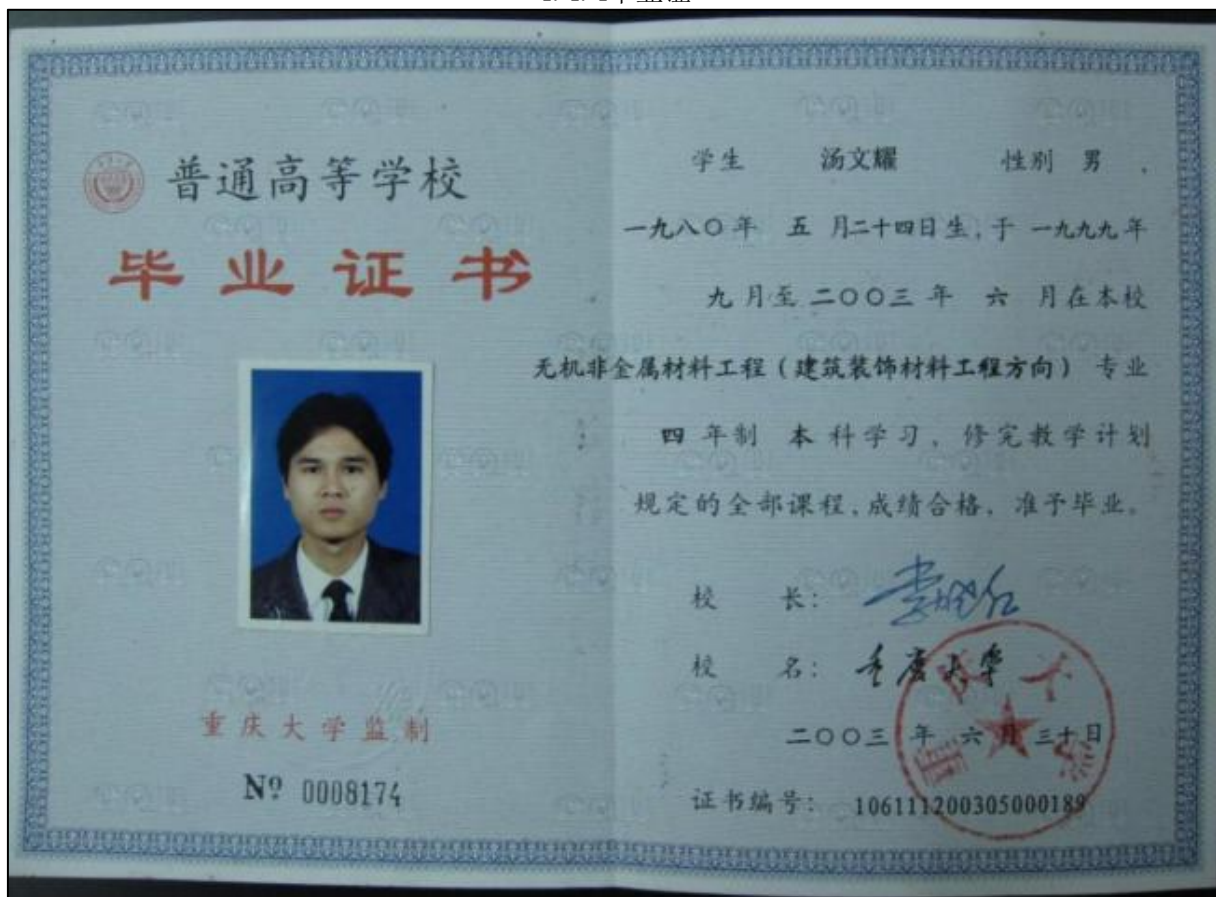 普通高等学校
毕业证书
重庆大学监制
Nº 0008174
学生 汤文耀 性别 男 ,
一九八〇年 五 月二十四日生,于 一九九九年
九月至 二〇〇三 年 六 月在本校
无机非金属材料工程(建筑装饰材料工程方向) 专业
四 年制 本 科学习, 修完教学计划
规定的全部课程,成绩合格, 准予毕业。
校 长:
校 名: 重庆大学
二〇〇三 年 六 月 三十日
证书编号: 106111200305000189